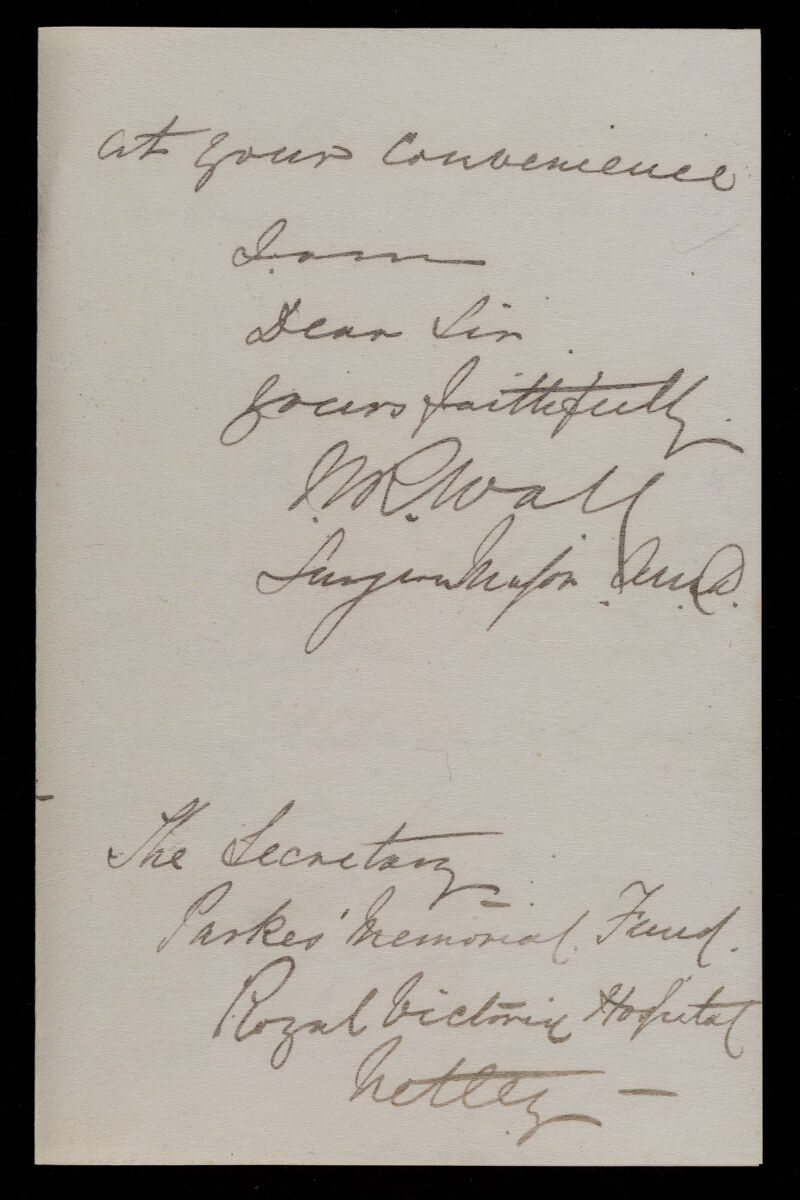 at your convenience
I am
Dear Sir
yours faithfully
R. Wall
Surgeon Major. A.M.D.
The Secretary
Parkes' Memorial Fund.
Royal Victoria Hospital
Netley —